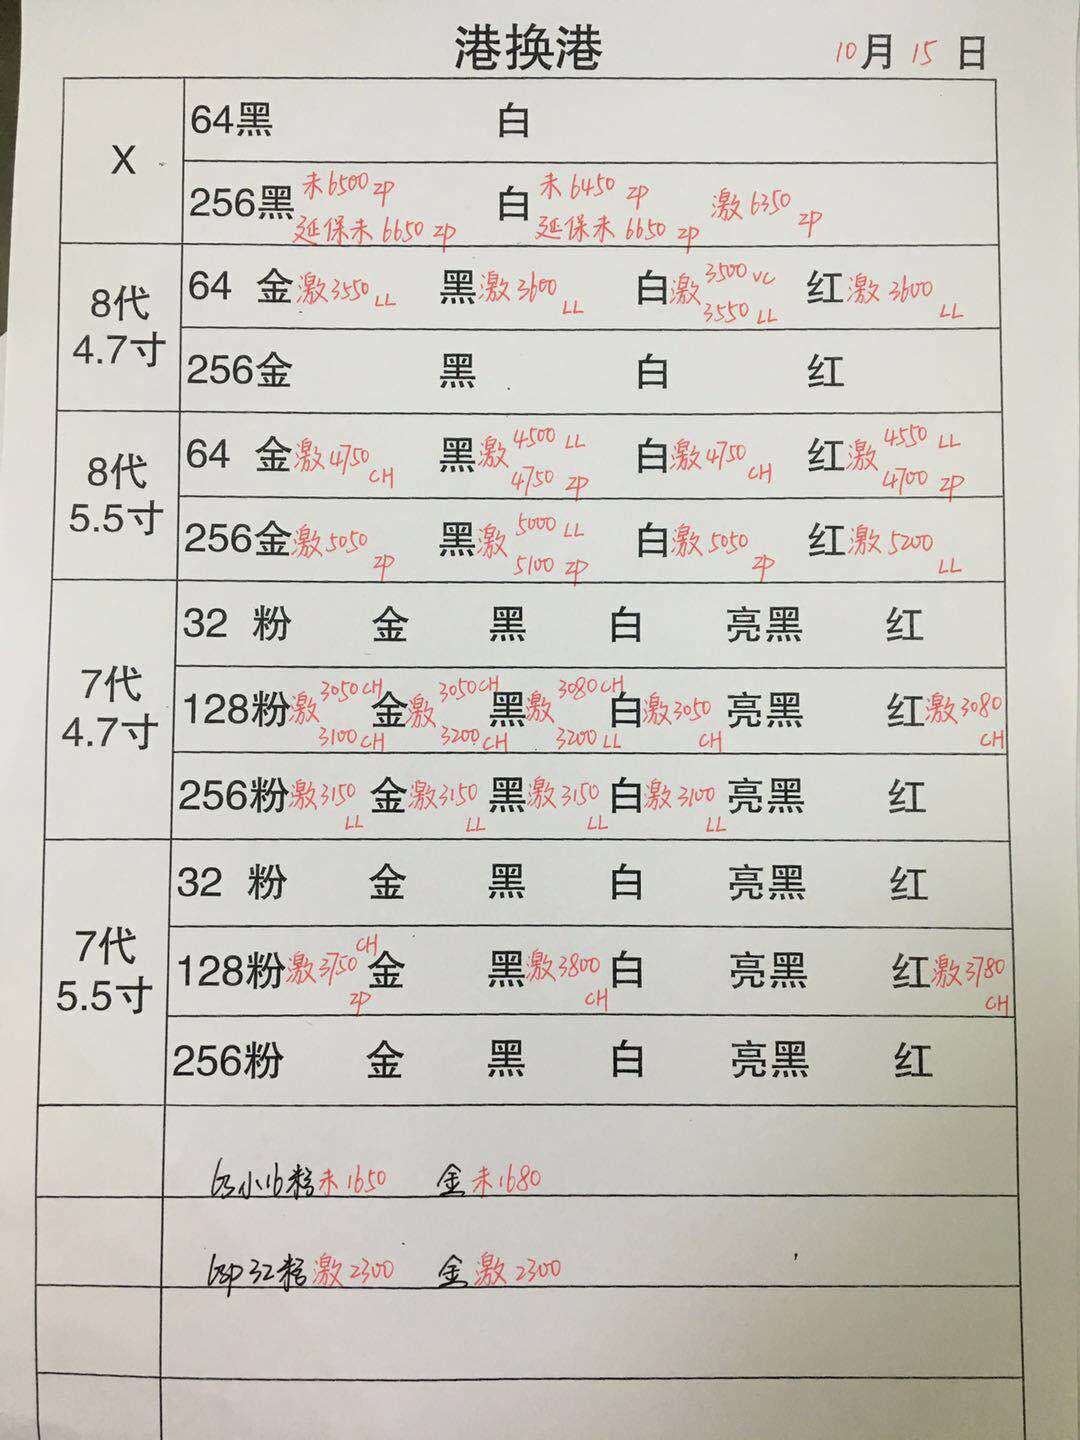 港换港 10月15日
X
64黑 白
256黑 未6500 ZP 延保未6650 ZP 白 未6450 ZP 延保未6650 ZP 激6350 ZP
8代
4.7寸
64 金激3550 LL 黑激3600 LL 白激3500 VC 3550 LL 红激3600 LL
256金 黑 白 红
8代
5.5寸
64 金激4750 CH 黑激4500 LL 4750 ZP 白激4750 CH 红激4550 LL 4700 ZP
256金激5050 ZP 黑激5000 LL 5100 ZP 白激5050 ZP 红激5200 LL
7代
4.7寸
32 粉 金 黑 白 亮黑 红
128粉激3050CH 3100CH 金激3050CH 3200CH 黑激3080CH 3200LL 白激3050 CH 亮黑 红激3080 CH
256粉激3150 LL 金激3150 LL 黑激3150 LL 白激3100 LL 亮黑 红
7代
5.5寸
32 粉 金 黑 白 亮黑 红
128粉激3750 CH ZP 金 黑激3800 CH 白 亮黑 红激3780 CH
256粉 金 黑 白 亮黑 红
6s小16粉未1650 金未1680
6sp32粉激2300 金激2300